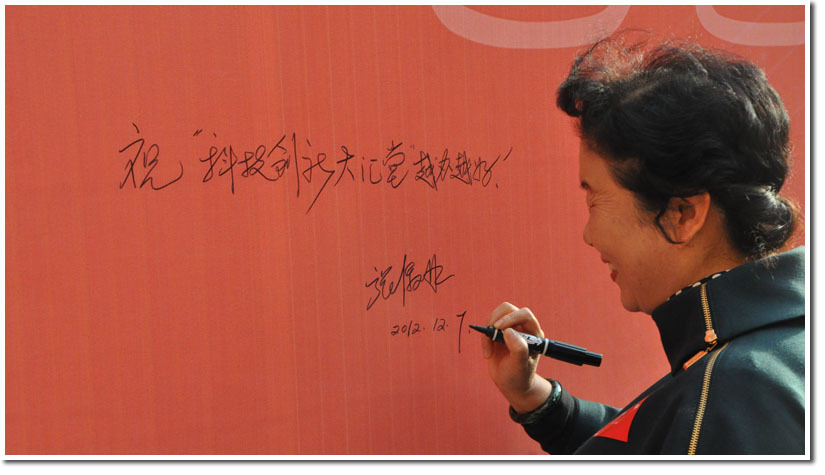 祝"科技创新大汇堂"越办越好!
2012.12.7.